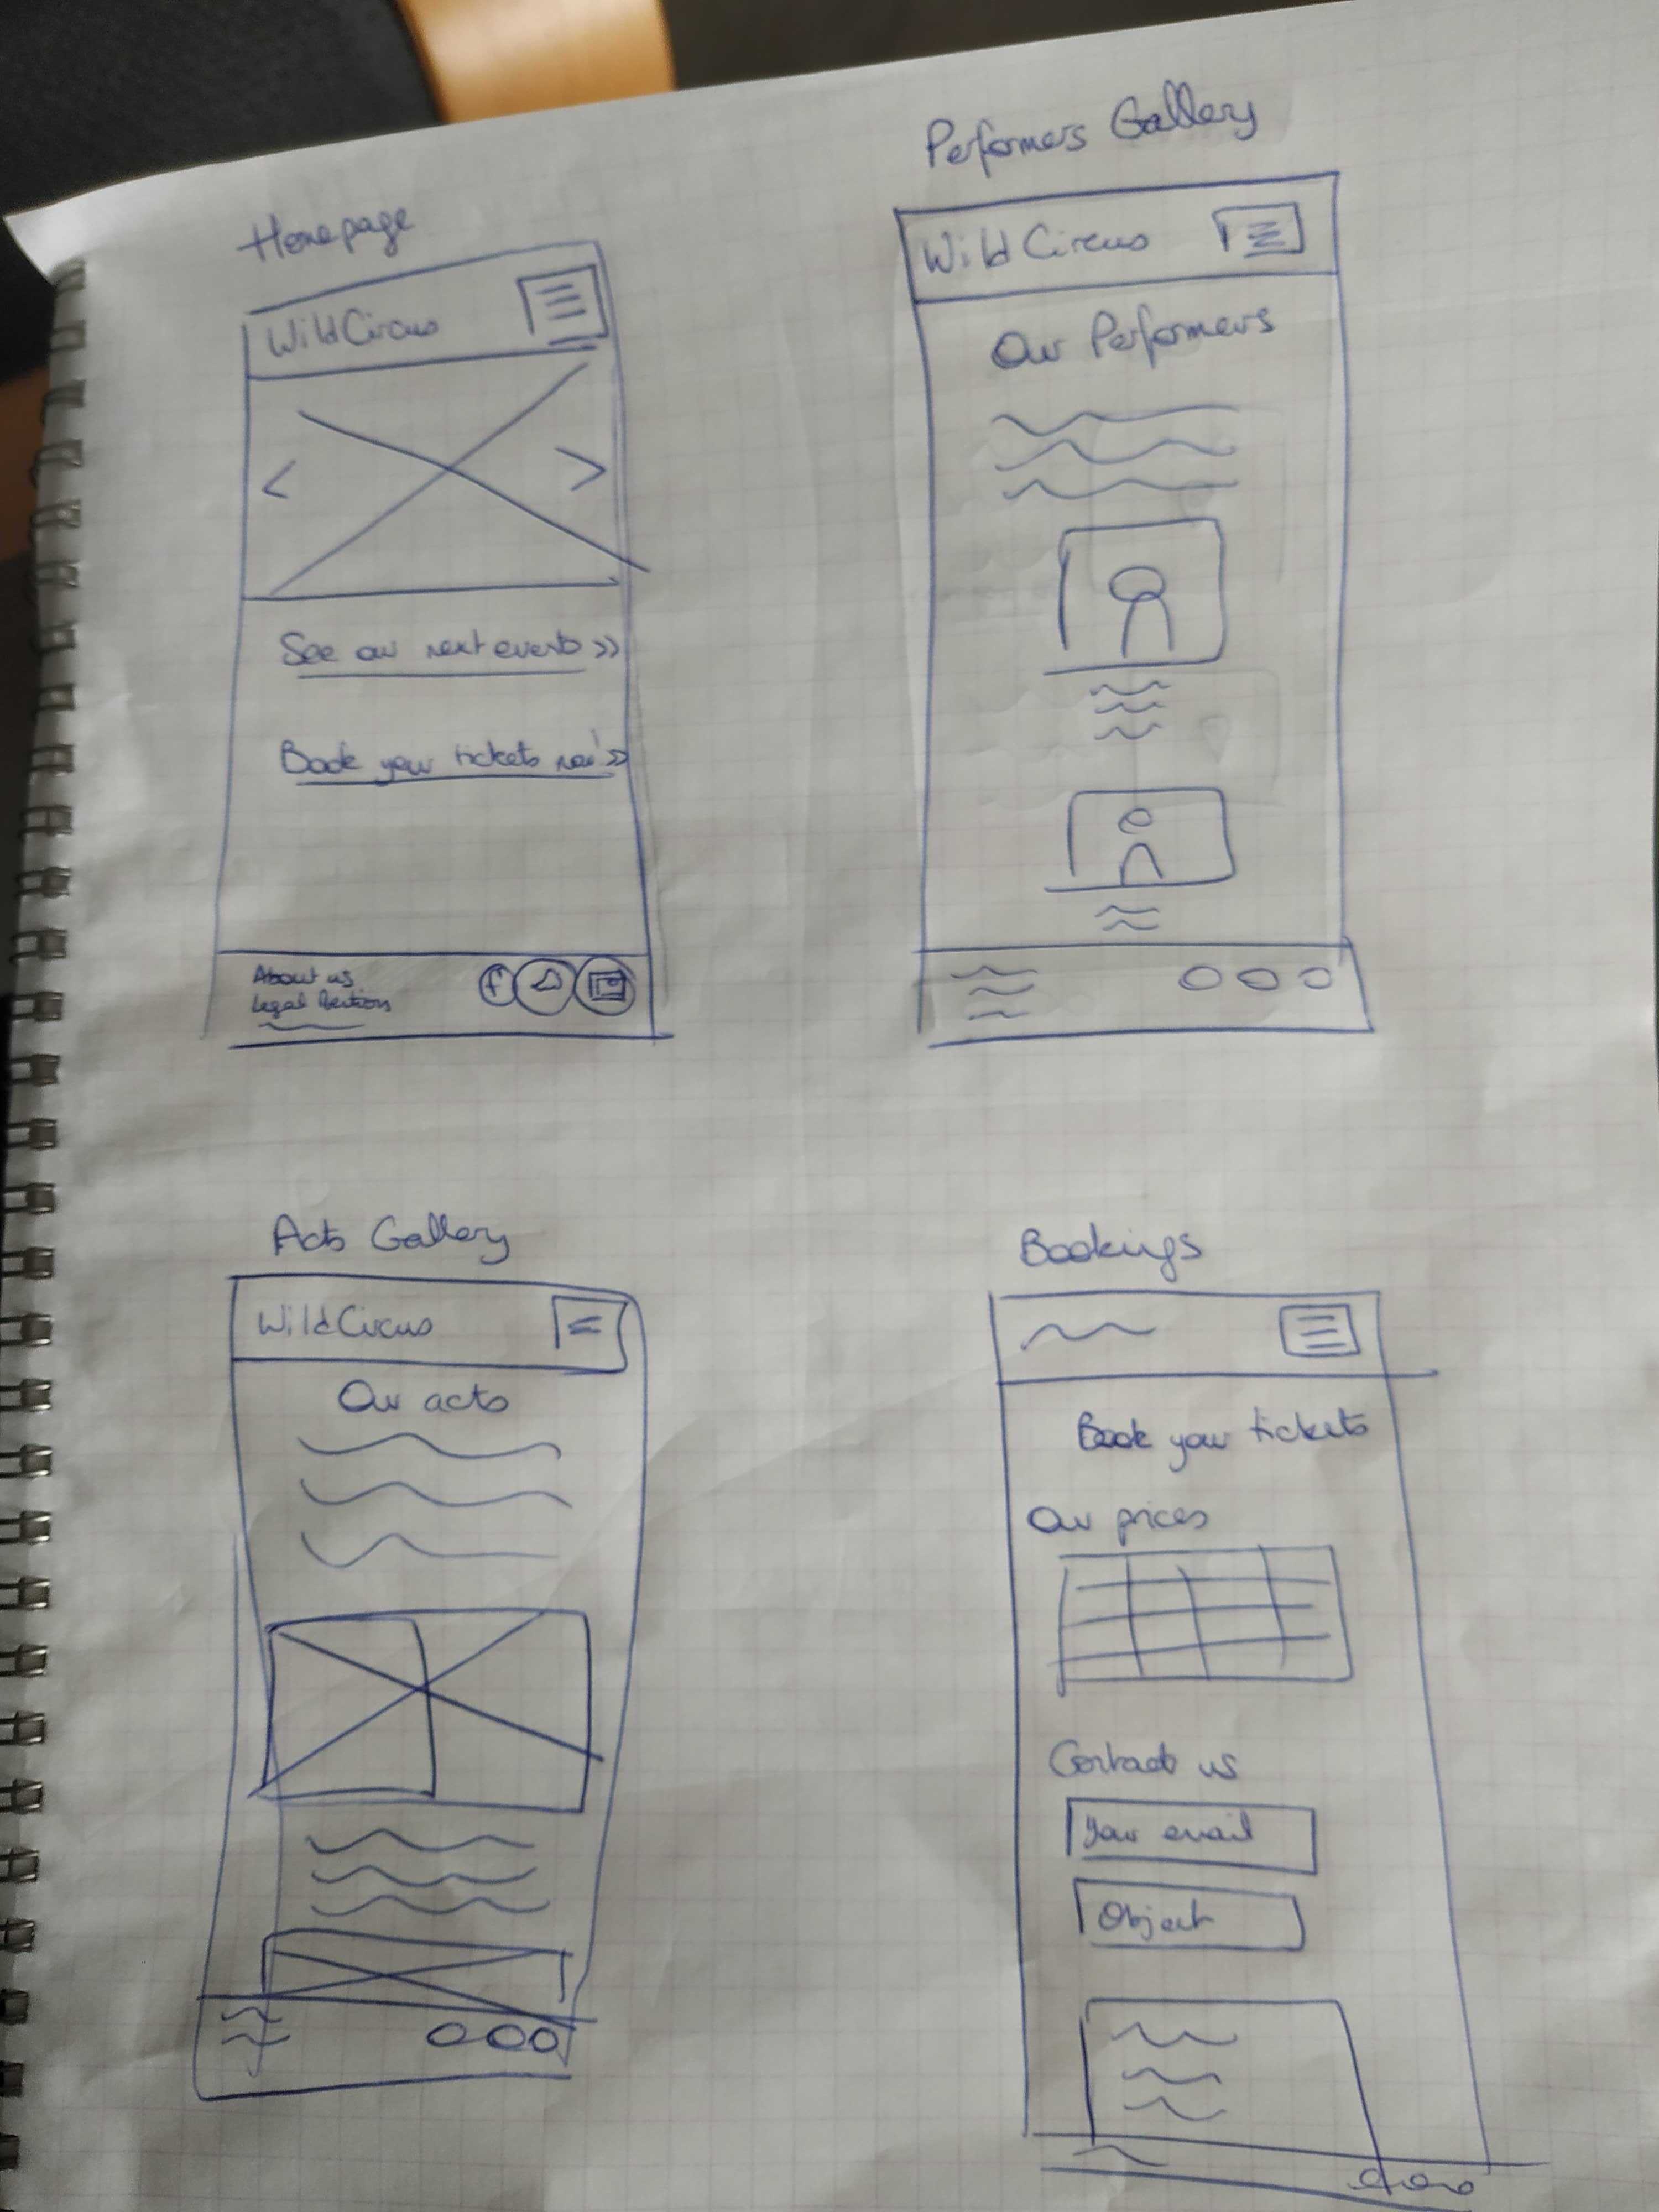 Homepage
WildCircus
<
>
See our next events >>
Book your tickets now! >>
About us
Legal
f
Performers Gallery
Wild Circus
Our Performers
Acts Gallery
WildCircus
Our acts
Bookings
Book your tickets
Our prices
Contact us
Your email
Object